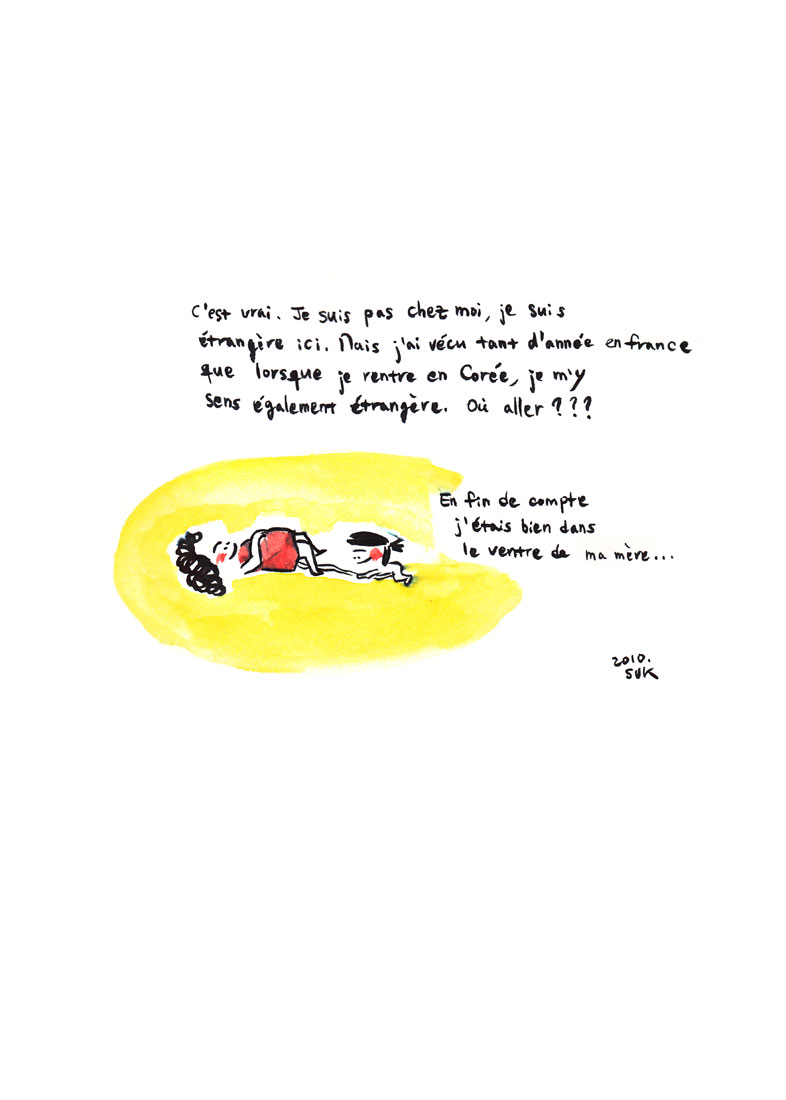 C'est vrai. Je suis pas chez moi, je suis
étrangère ici. Mais j'ai vécu tant d'année en france
que lorsque je rentre en Corée, je m'y
sens également étrangère. Où aller ???
En fin de compte
j'étais bien dans
le ventre de ma mère...
2010.
SUK